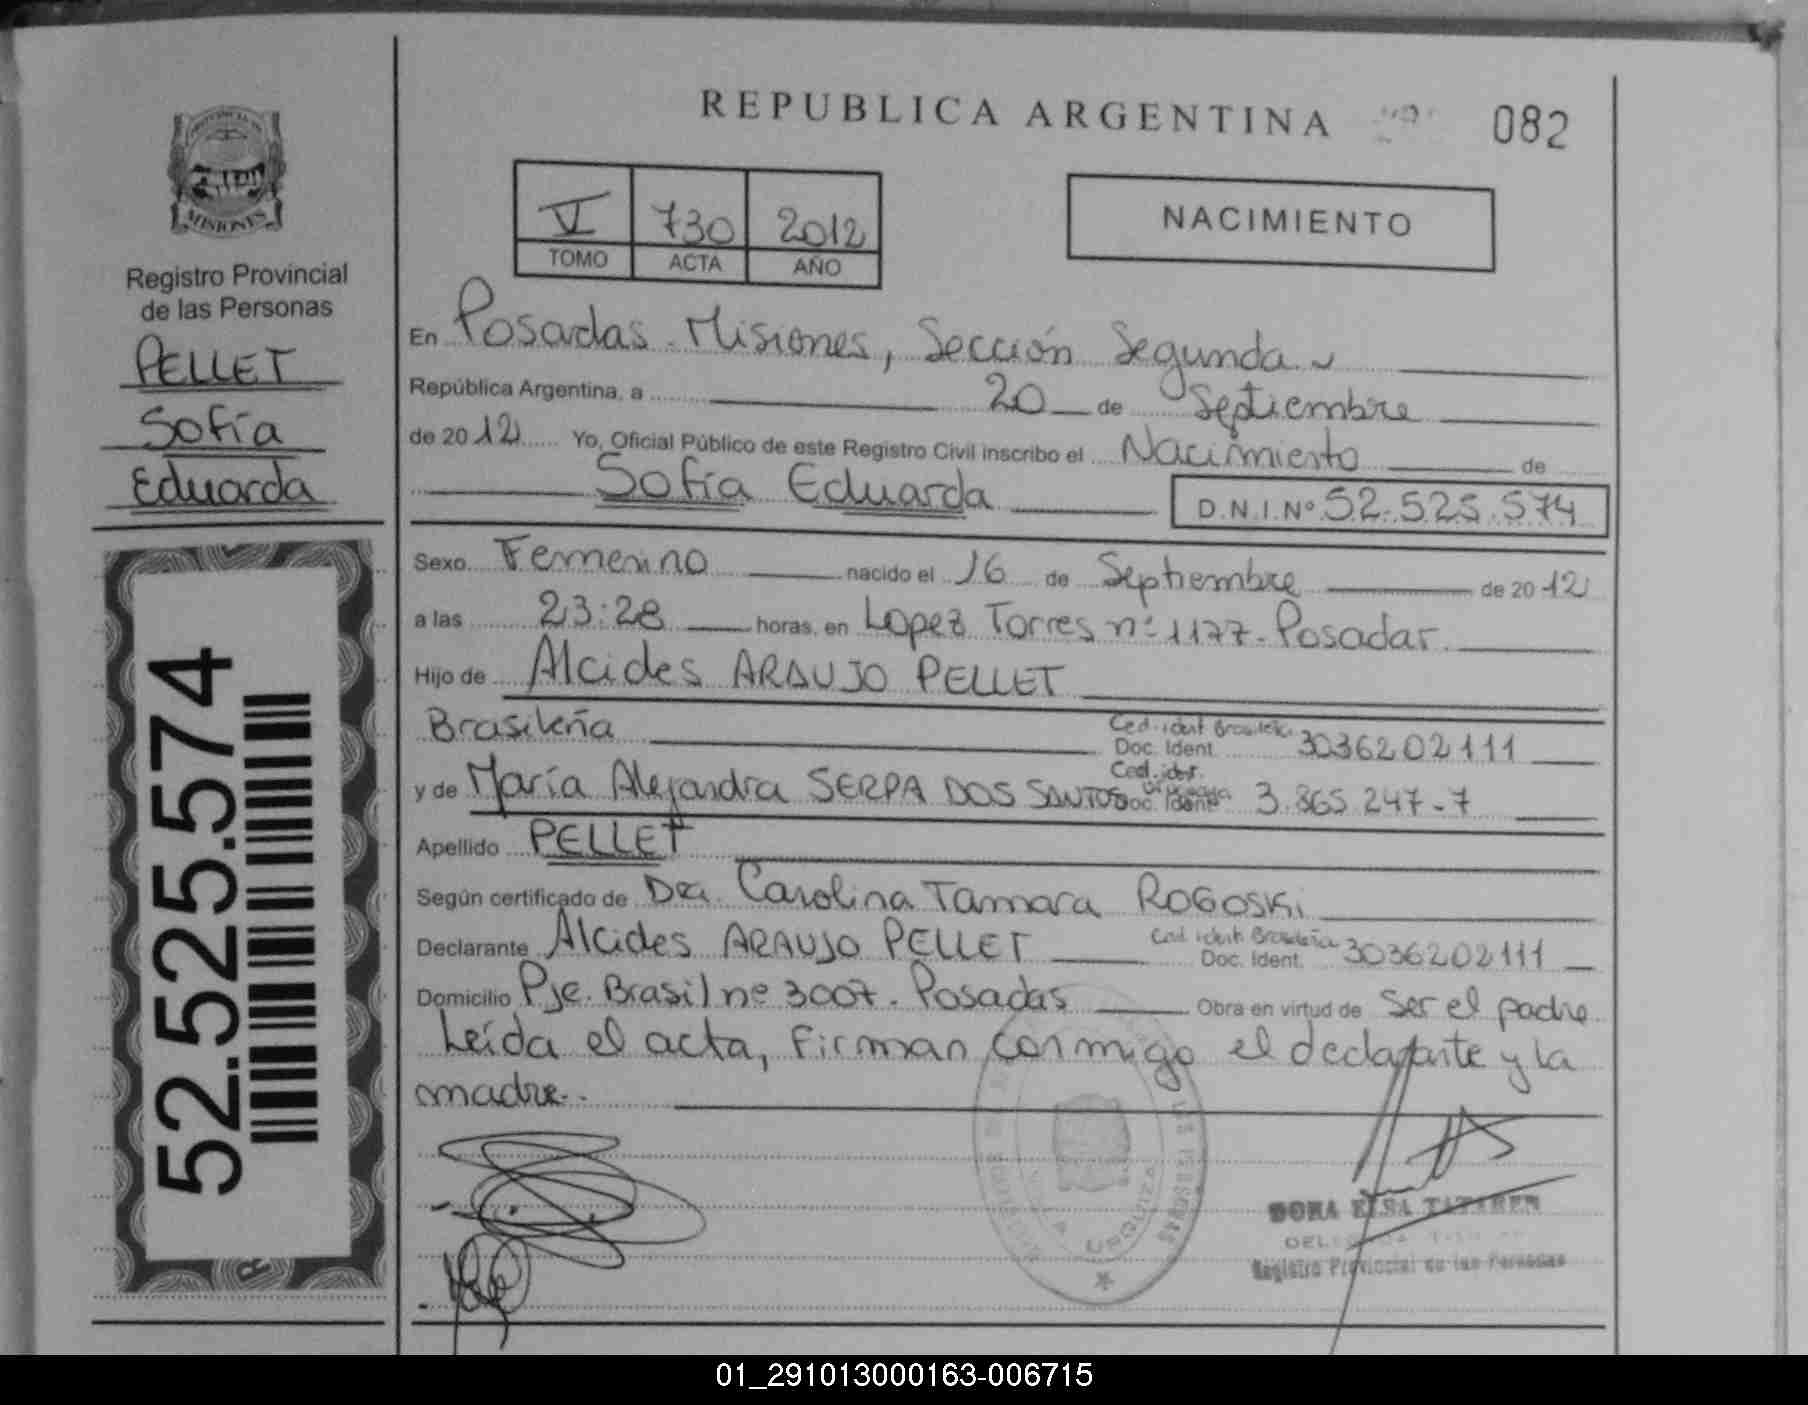 REPUBLICA ARGENTINA
082
PROVINCIA DE
MISIONES
Registro Provincial
de las Personas
PELLET
Sofía
Eduarda
52.525.574
VI 730 2012
TOMO ACTA AÑO
NACIMIENTO
En Posadas - Misiones, Sección Segunda
República Argentina, a 20 de Septiembre
de 2012 Yo, Oficial Público de este Registro Civil inscribo el Nacimiento de
Sofía Eduarda D.N.I.Nº 52.525.574
Sexo Femenino nacido el 16 de Septiembre de 2012
a las 23:28 horas, en Lopez Torres nº 1177 - Posadas
Hijo de Alcides ARAUJO PELLET
Brasileña Ced. ident Brasileña Doc. Ident. 3036202111
y de María Alejandra SERPA DOS SANTOS Ced. iden. Uruguaya Doc. Ident. 3.865.247-7
Apellido PELLET
Según certificado de Dra. Carolina Tamara ROGOSKI
Declarante Alcides ARAUJO PELLET Ced ident. Brasileña Doc. Ident. 3036202111
Domicilio Pje. Brasil nº 3007 - Posadas Obra en virtud de ser el padre
Leída el acta, firman conmigo el declarante y la
madre.-
VILLA URQUIZA
DORA ELSA
Registro Provincial de las Personas
01_291013000163-006715